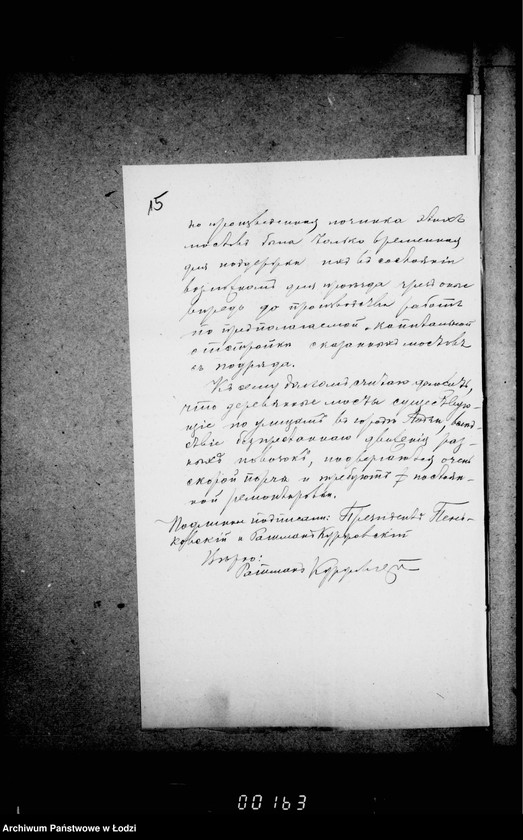 15
но произведенная починка этихъ
мостовъ была только временная
для поддержки ихъ въ состояніи
возможномъ для проезда чрезъ оные
впредь до производства работъ
по предполагаемой капитальной
отстройки сказанныхъ мостовъ
съ подряда.
Къ сему долгомъ считаю доложить,
что деревянные мосты существую-
щіе по улицамъ въ городѣ Лодзи, вслѣд-
ствіе безпрерывнаго движенія раз-
ныхъ повозокъ, подвергаются очень
скорой порчи и требуютъ постоян-
ной ремонтировки.
Подлинное подписали: Президентъ Пень-
ковскій и Ратманъ Куровскій
Вѣрно:
Ратманъ
00163
Archiwum Państwowe w Łodzi